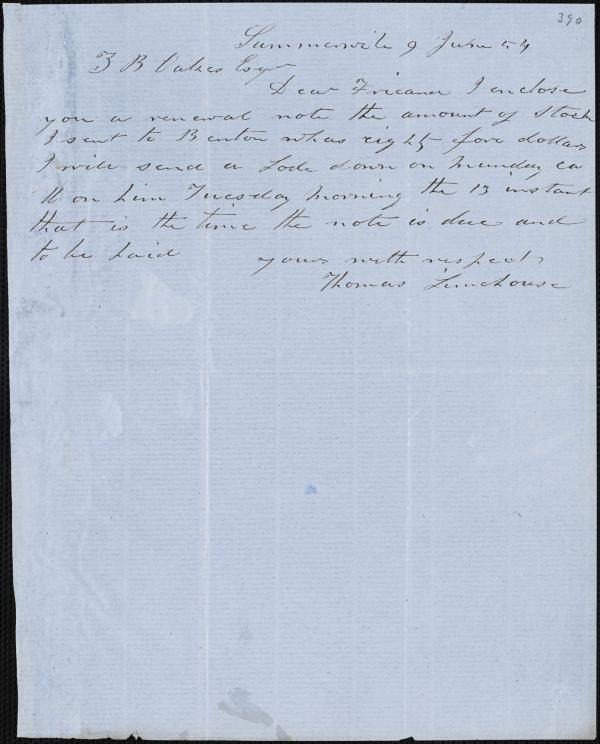 390
Summervile 9 June 54
Z B Oakes Esqr
Dear Friend I enclose
you a renewal note the amount of Stock
I sent to Benton whas eighty fore dollars
I will send a Lode down on Munday ca
ll on him Tuesday morning the 13 instant
that is the time the note is due and
to be paid yours with respect
Thomas Limehouse